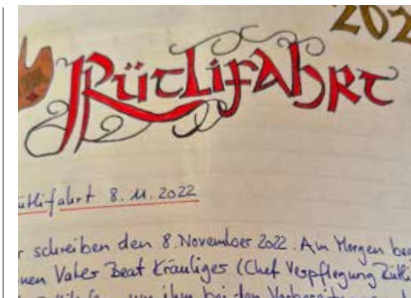 202
Rütlifahrt
ütlifahrt 8.11.2022
r schreiben den 8. November 2022. Am Morgen beg
nen Vater Beat Kräuliger (Chef Verpflegung Rütli
um ihm bei den Vorbereitungen